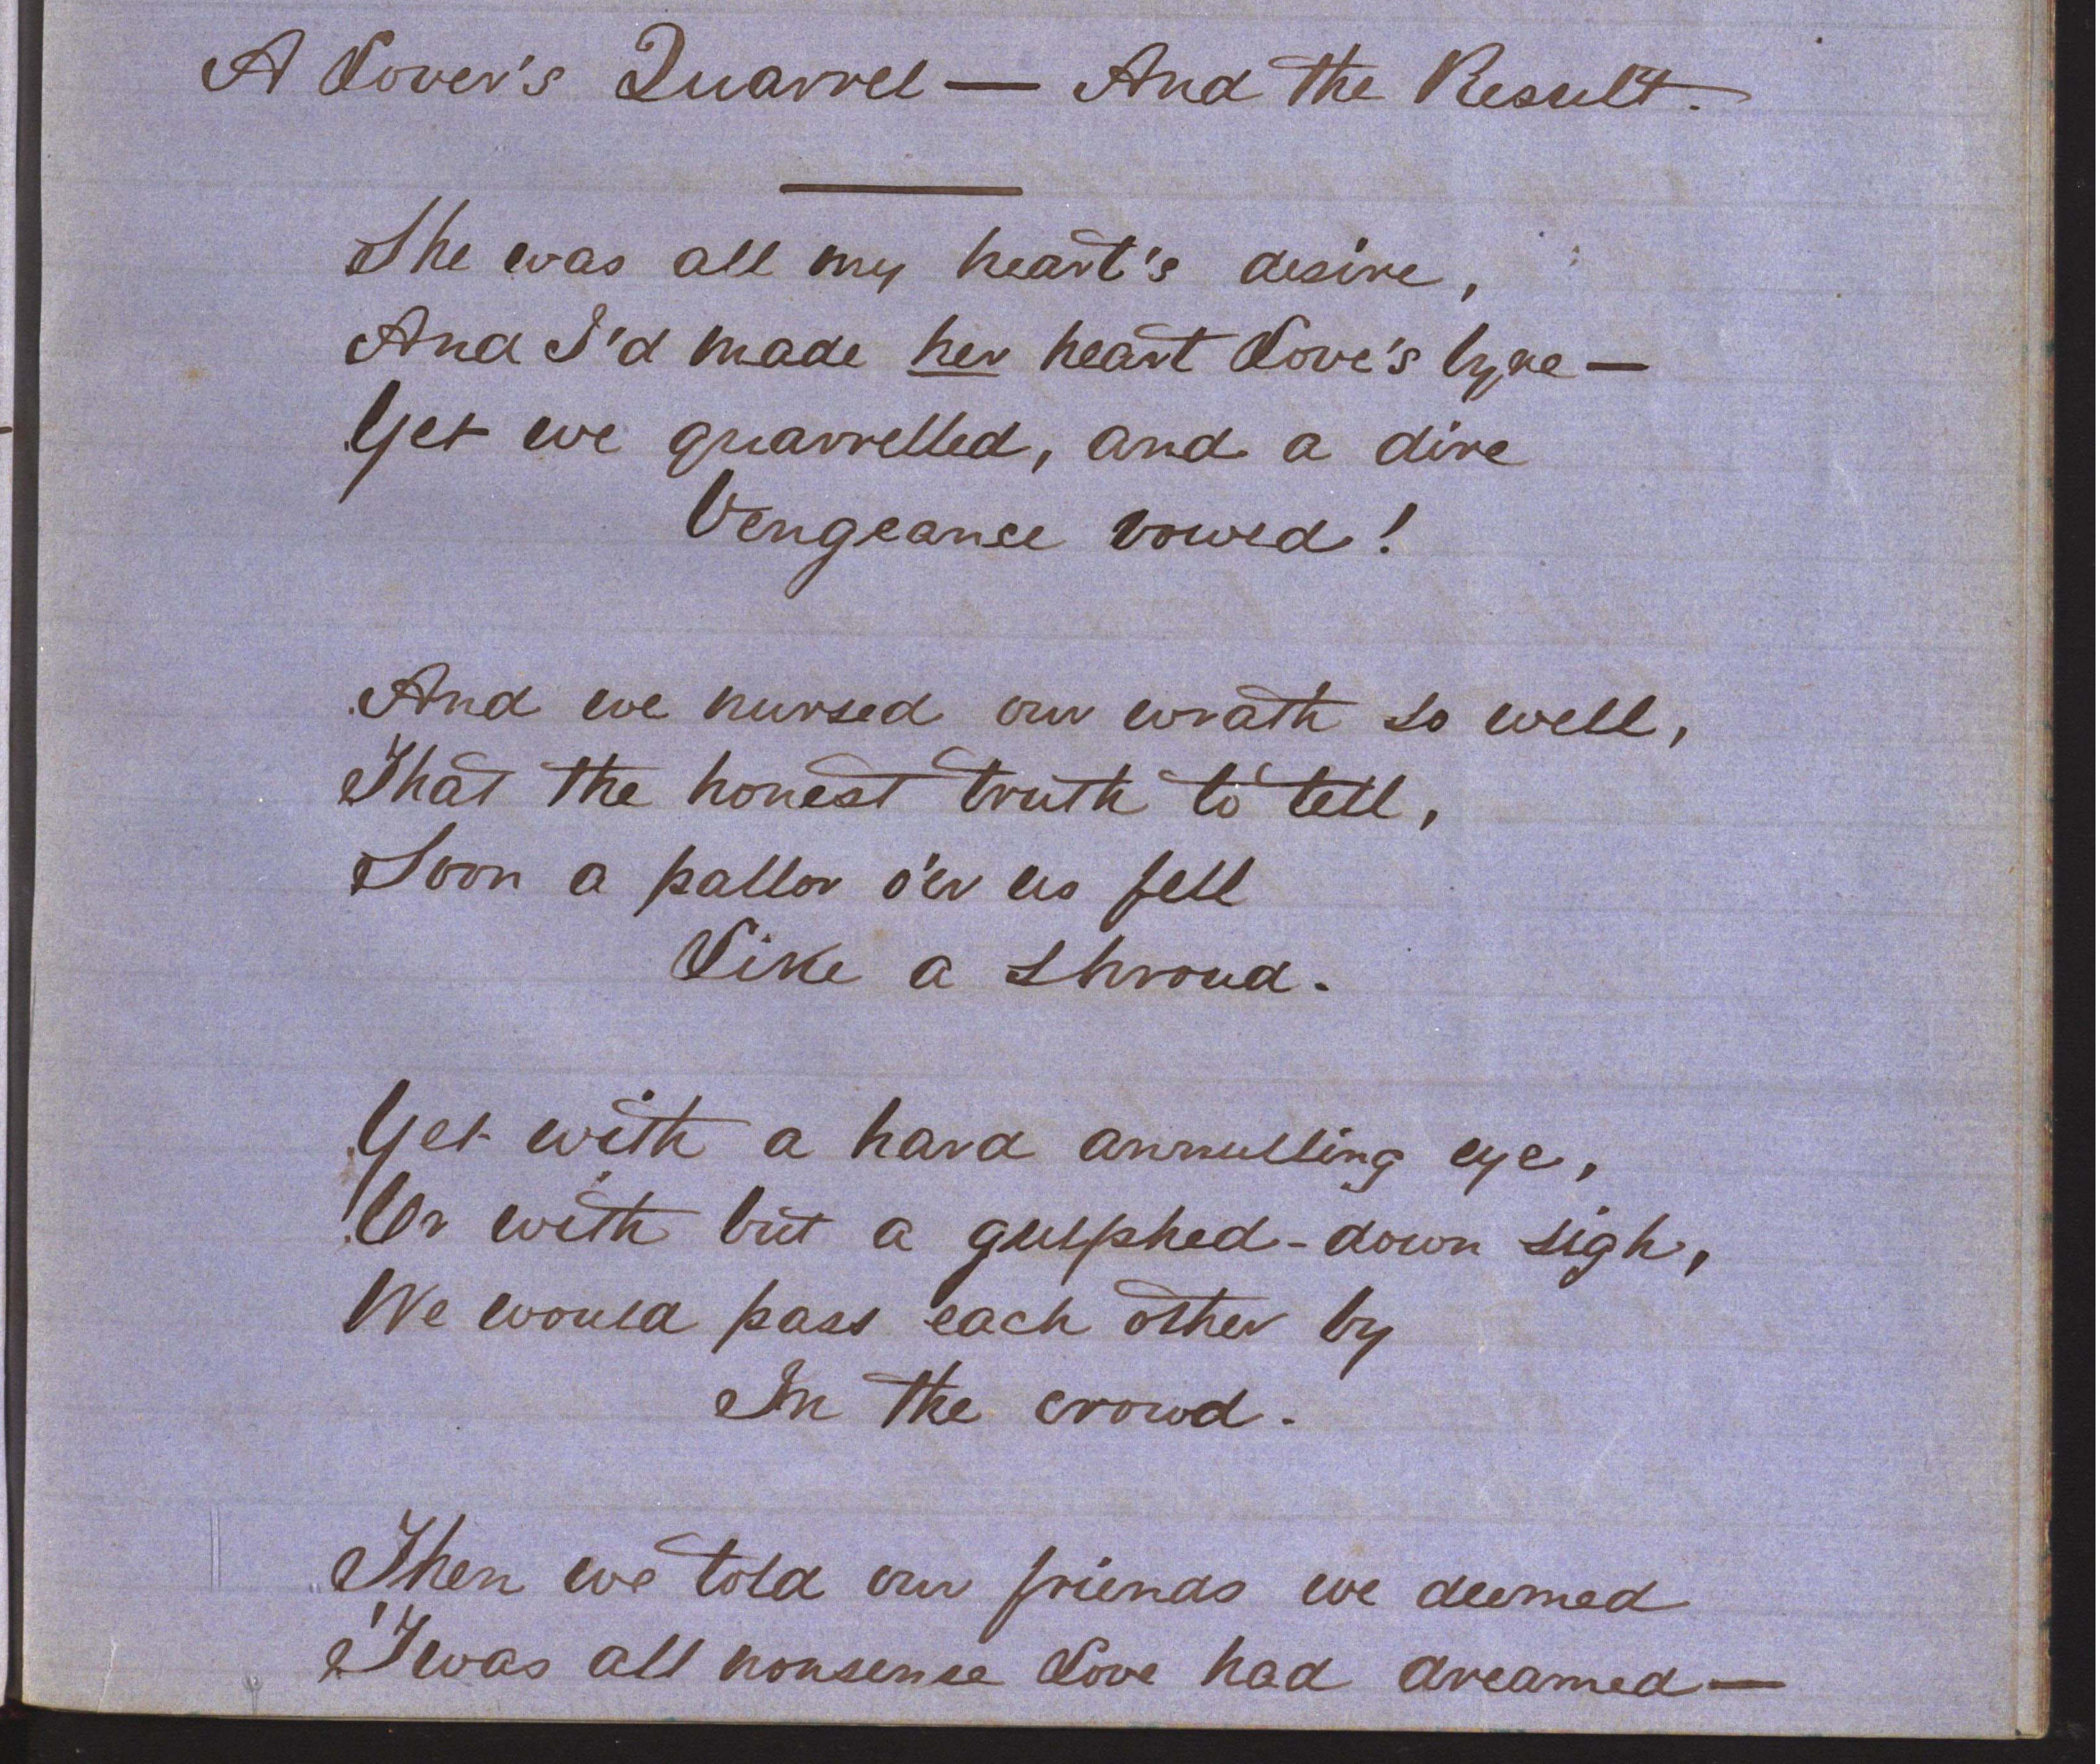 A Lover's Quarrel — And the Result.
She was all my heart's desire,
And I'd made her heart Love's lyre —
Yet we quarrelled, and a dire
Vengeance vowed!
And we nursed our wrath so well,
That the honest truth to tell,
Soon a pallor o'er us fell
Like a shroud.
Yet with a hard annulling eye,
Or with but a gulphed-down sigh,
We would pass each other by
In the crowd.
Then we told our friends we deemed
'Twas all nonsense Love had dreamed —